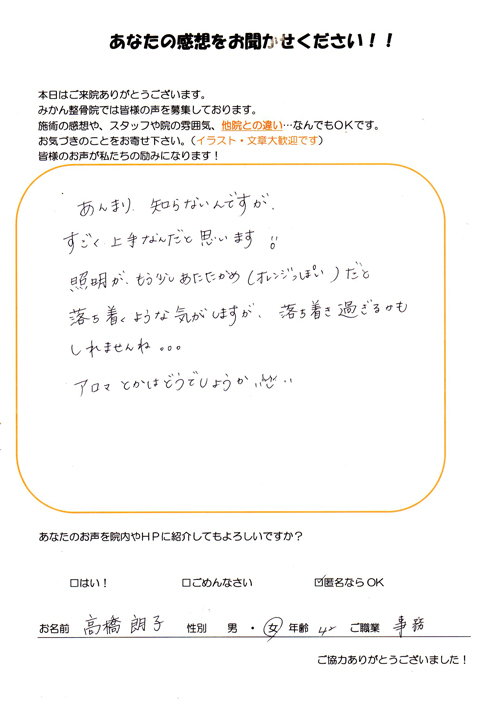 あなたの感想をお聞かせください！！
本日はご来院ありがとうございます。
みかん整骨院では皆様の声を募集しております。
施術の感想や、スタッフや院の雰囲気、他院との違い…なんでもOKです。
お気づきのことをお寄せ下さい。（イラスト・文章大歓迎です）
皆様のお声が私たちの励みになります！
あんまり、知らないんですが、
すごく上手なんだと思います!!
照明が、もう少しあたたかめ（オレンジっぽい）だと
落ち着くような気がしますが、落ち着き過ぎるかも
しれませんね。。。
アロマとかはどうでしょうか
あなたのお声を院内やHPに紹介してもよろしいですか？
□はい！ □ごめんなさい ☑匿名ならOK
お名前 高橋 朗子 性別 男・女 年齢 42 ご職業 事務
ご協力ありがとうございました！